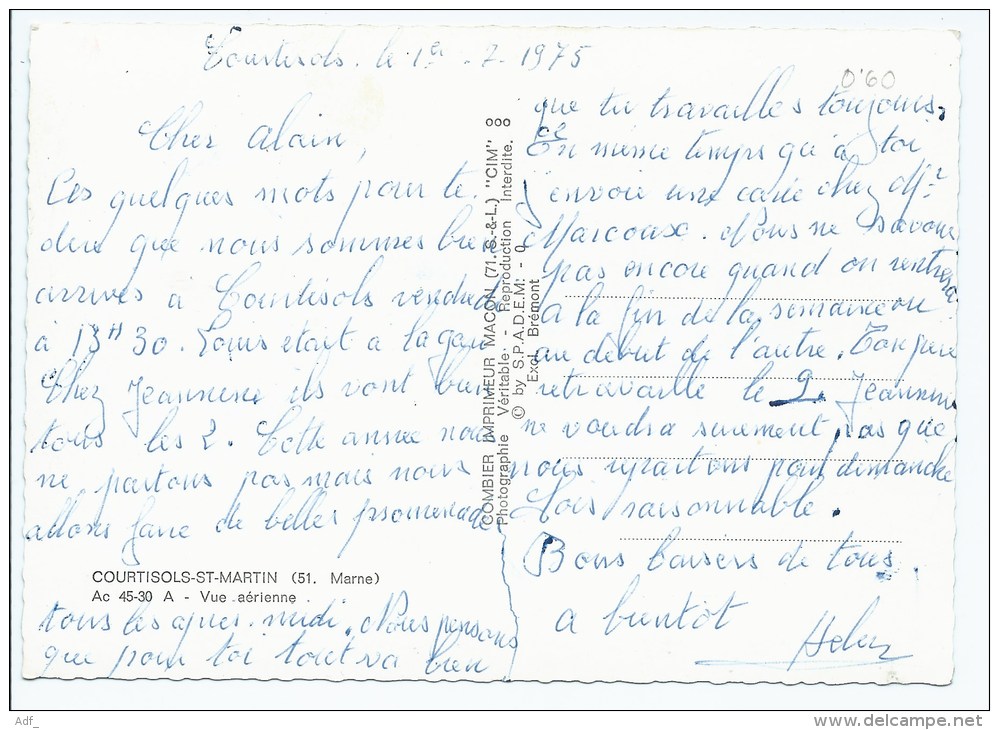 Courtisols. le 1er - 7 - 1975
0'60
Cher Alain,
Ces quelques mots pour te
dire que nous sommes bien
arrivés à Courtisols vendredi
à 13H30. Louis était à la gare
Chez Jeannine ils vont bien
tous les 2. Cette année nous
ne partons pas mais nous
allons faire de belles promenades
COURTISOLS-ST-MARTIN (51. Marne)
Ac 45-30 A - Vue aérienne
tous les après-midi. Nous pensons
que pour toi tout va bien
COMBIER IMPRIMEUR MACON (71.-S.-&-L.) "CIM"
Photographie Véritable - Reproduction Interdite.
© by S.P.A.D.E.M. - 0
Excl. Brémont
que tu travailles toujours.
En même temps qu'à toi
j'envoie une carte chez Mr
Marcoux. Nous ne savons
pas encore quand on rentrera
à la fin de la semaine ou
au début de l'autre. Ton père
retravaille le 9. Jeannine
ne voudra surement pas que
nous repartons pour dimanche
Sois raisonnable.
Bons baisers de tous.
a bientôt
Adf_
www.delcampe.net